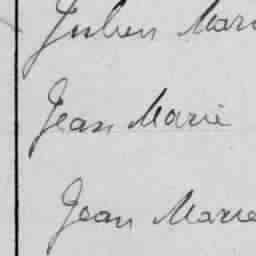 Julien Mari
Jean Marie
Jean Marie